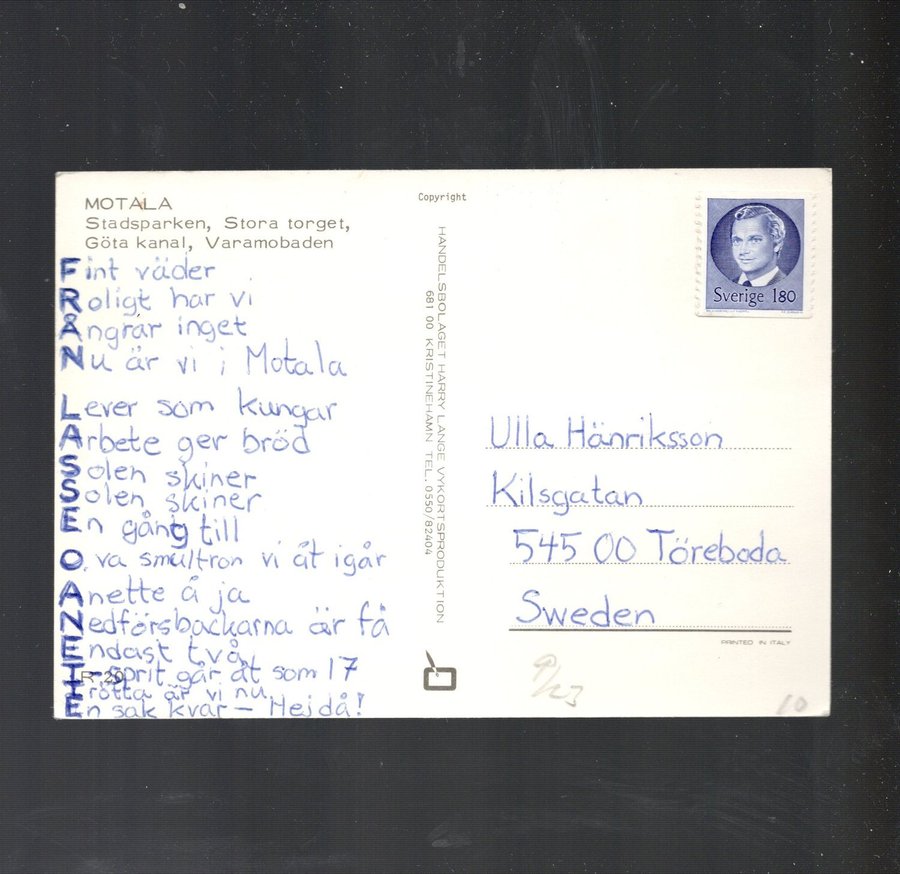 MOTALA
Stadsparken, Stora torget,
Göta kanal, Varamobaden
Fint väder
Roligt har vi
Ångrar inget
Nu är vi i Motala
Lever som kungar
Arbete ger bröd
Solen skiner
Solen skiner
En gång till
O, va smultron vi åt igår
Anette å ja
Nedförsbackarna är få
Endast två,
T-sprit går åt som 17
R 20
Trötta är vi nu
En sak kvar – Hejdå!
Copyright
HANDELSBOLAGET HARRY LANGE VYKORTSPRODUKTION
681 00 KRISTINEHAMN TEL. 0550/82404
Sverige 180
Ulla Hänriksson
Kilsgatan
545 00 Töreboda
Sweden
PRINTED IN ITALY
10